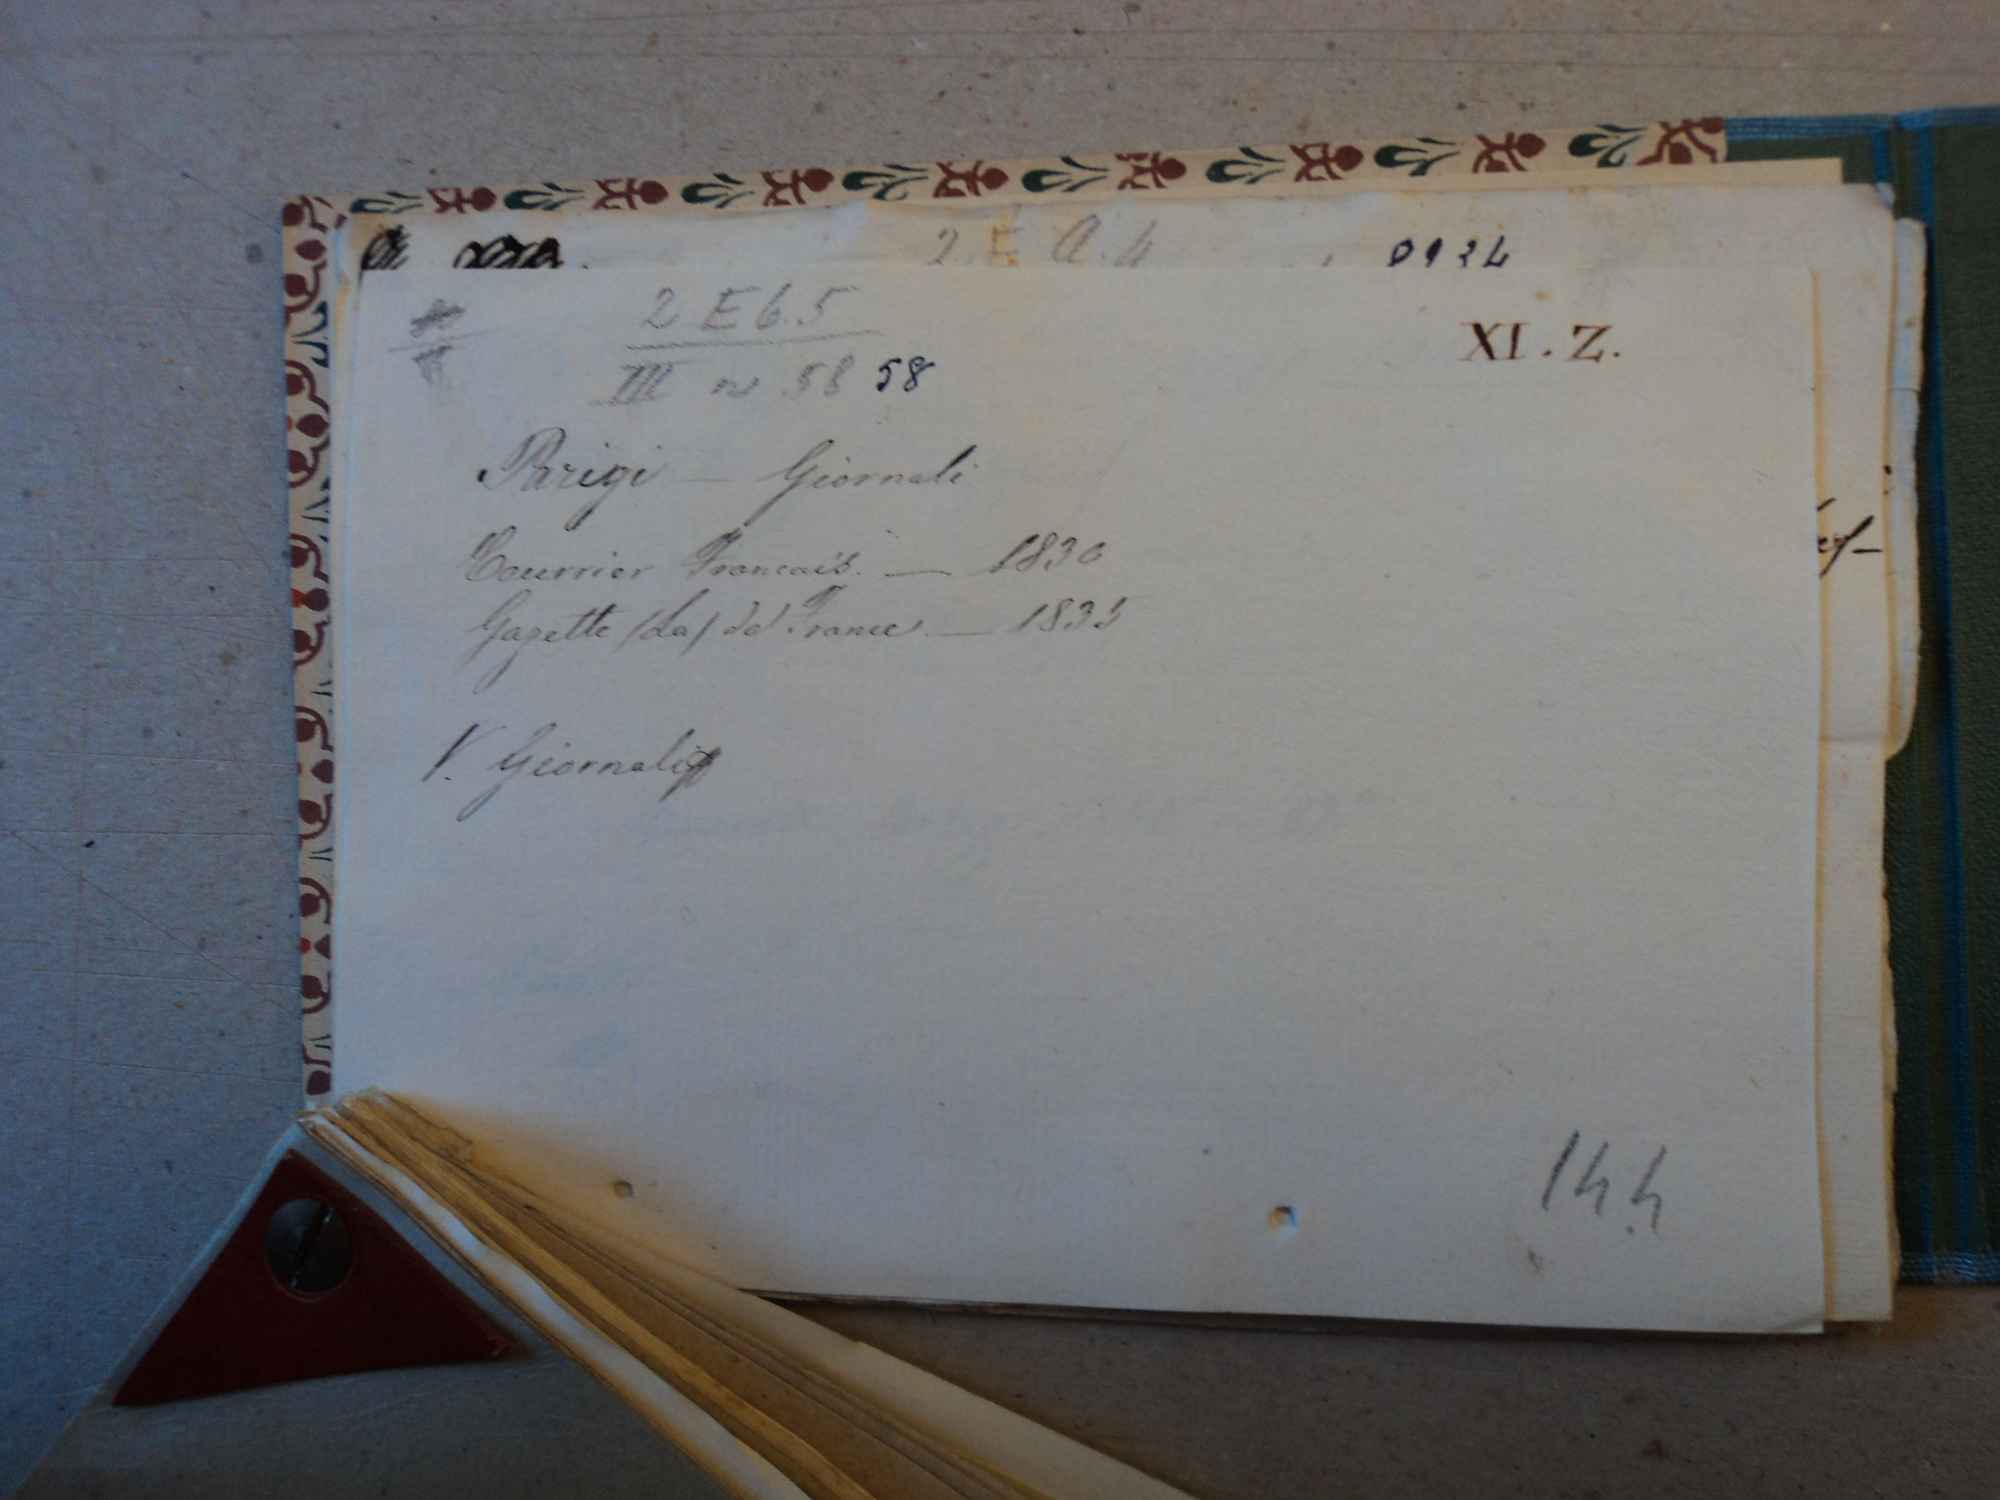 2 E A. 4
0124
2 E 6.5
XI. Z.
III n 58 58
Parigi — Giornali
Courrier Français. — 1830
Gazette (La) de France — 1835
V. Giornali
144